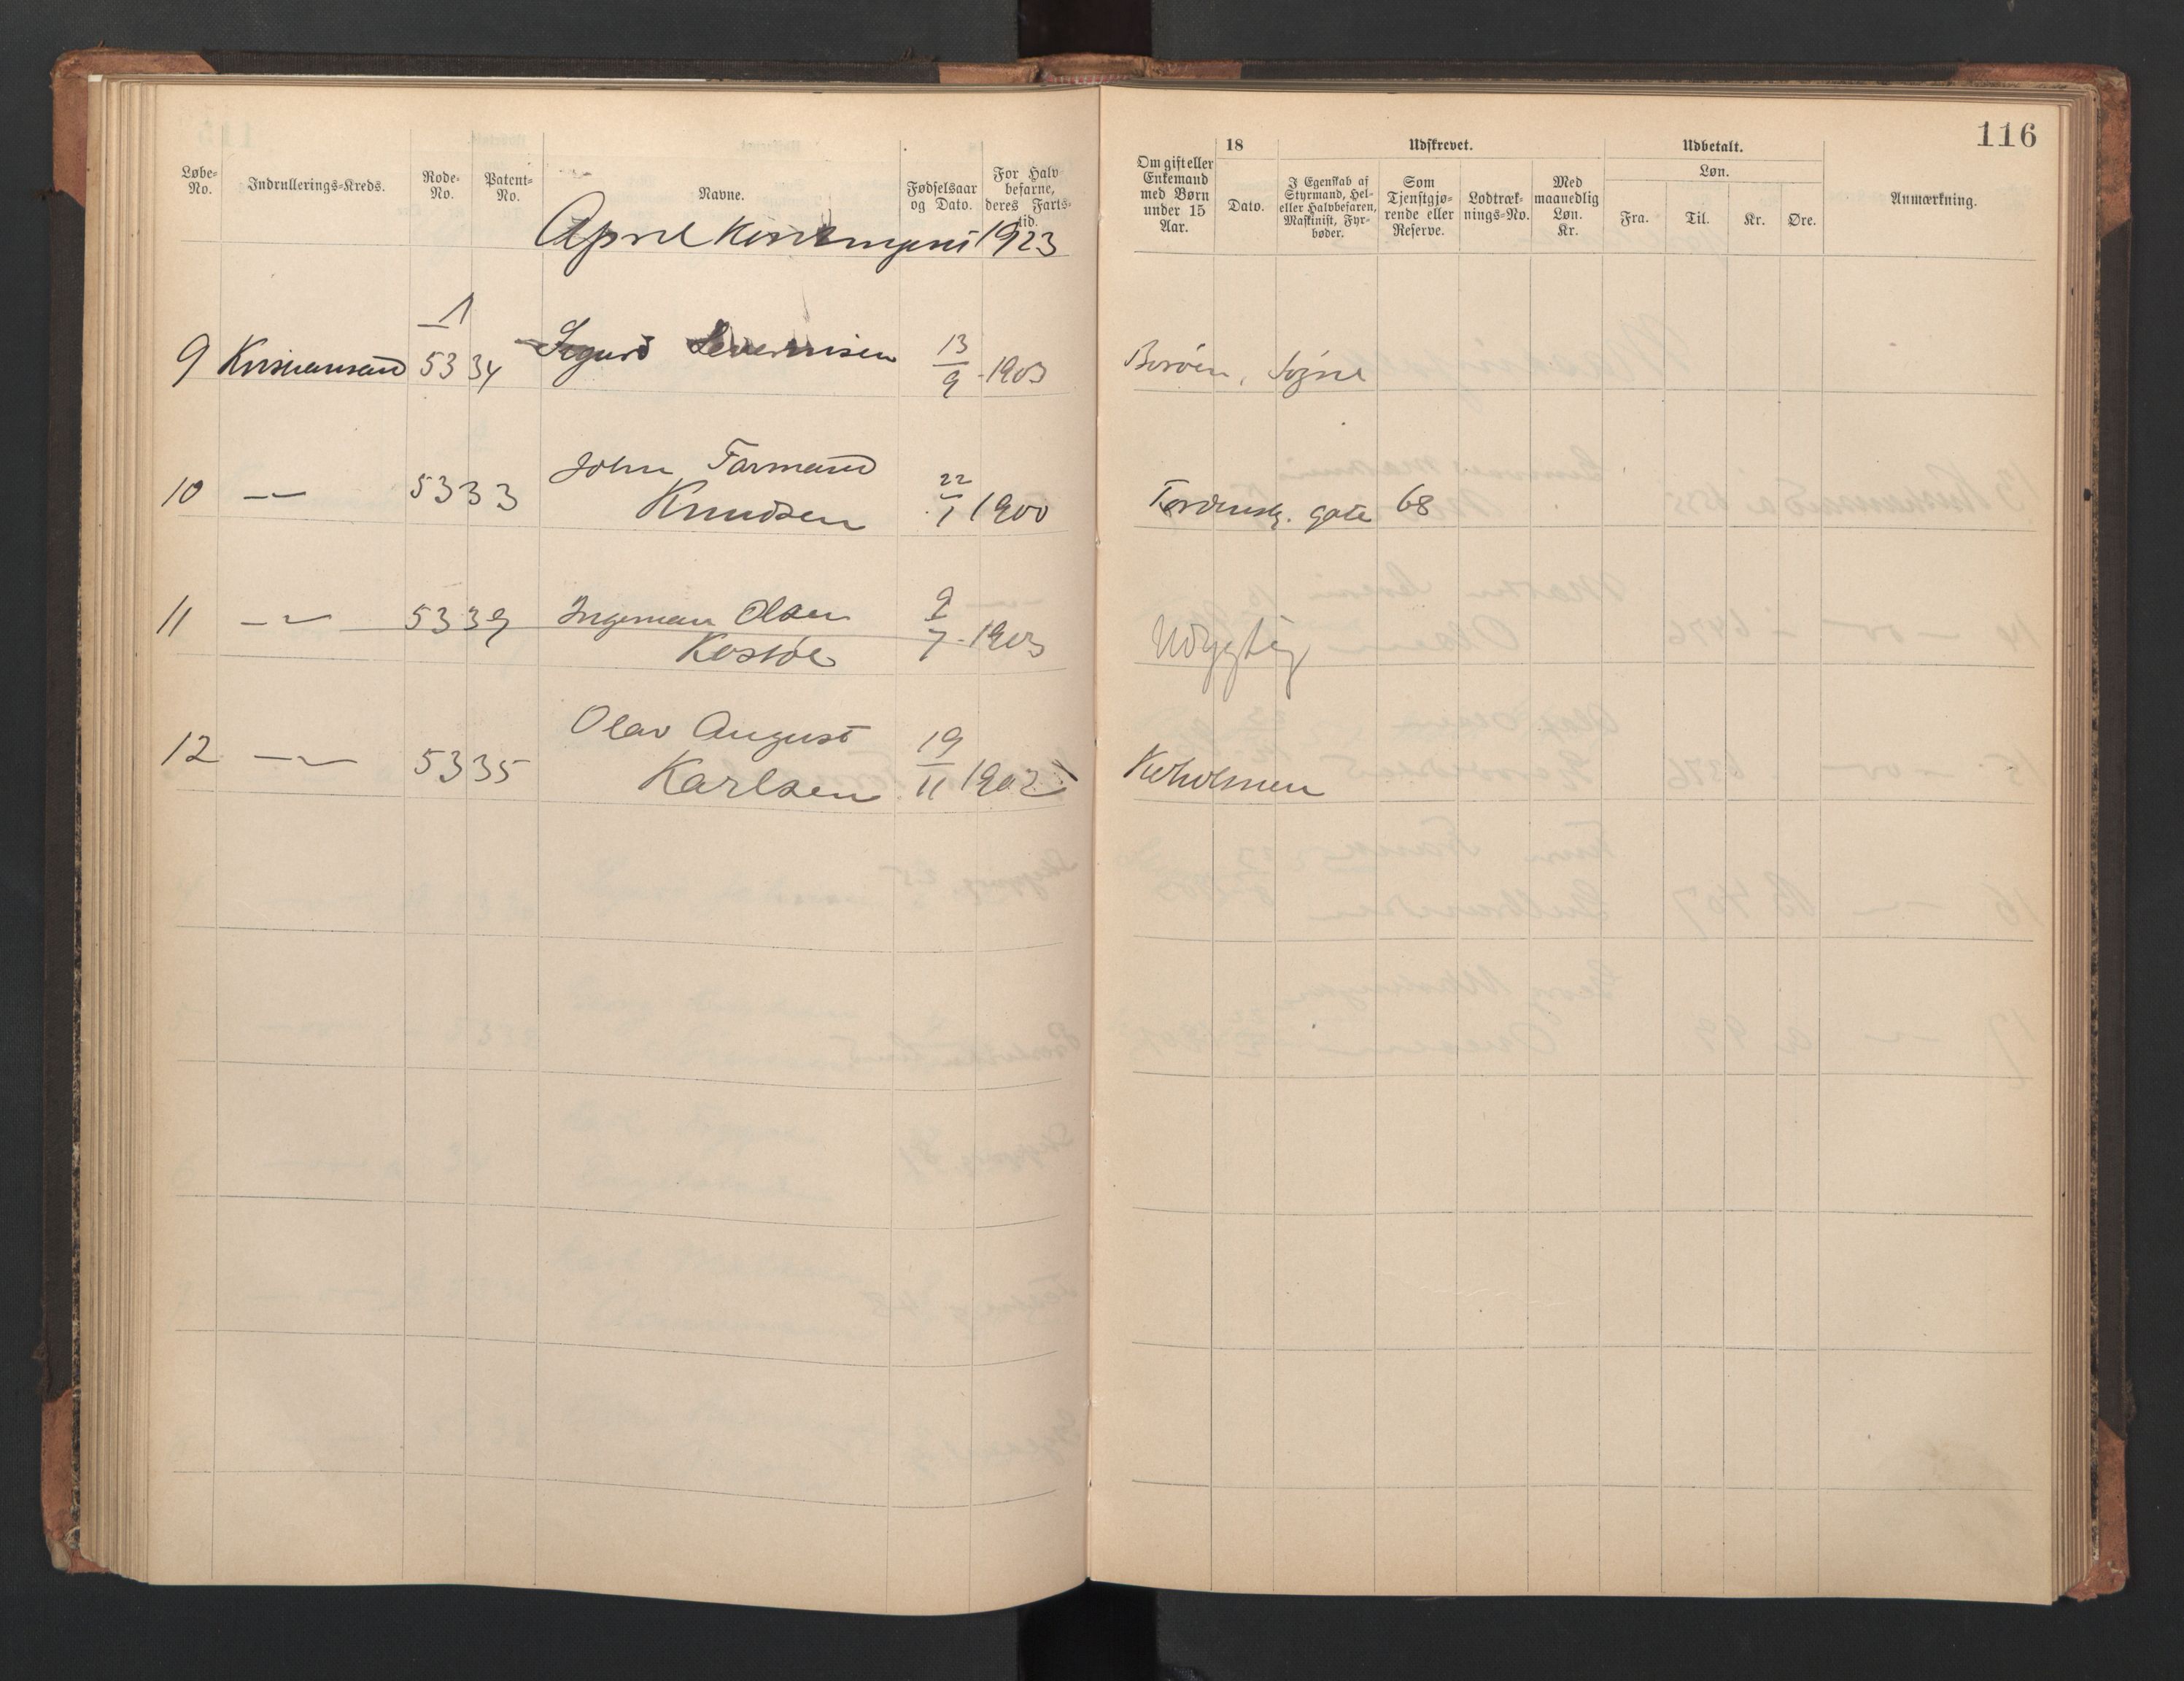 116
Løbe-No. Indrullerings-Kreds. Rode-No. Patent-No. Navne. Fødselsaar og Dato. For Halvbefarne, deres Farts-tid.
Om gift eller Enkemand med Børn under 15 Aar. 18 Dato. Udskrevet. I Egenskab af Styrmand, Hel- eller Halvbefaren, Maskinist, Fyrbøder. Som Tjenstgjørende eller Reserve. Lodtræknings-No. Med maanedlig Løn. Kr. Udbetalt. Løn. Fra. Til. Kr. Øre. Anmærkning.
April 1923
1
9 Kristiansand 5334 Sigurd Severinsen 13/9 - 1903 Borøen, Søgne
10 -〃- 5333 John Tormand Knudsen 22/1 1900 Tordensk. gate 68
11 -〃- 5339 Ingeman Olsen 9/7 - 1903 Udygtig
12 -〃- 5335 Olav August Karlsen 19/11 1902 Kuholmen